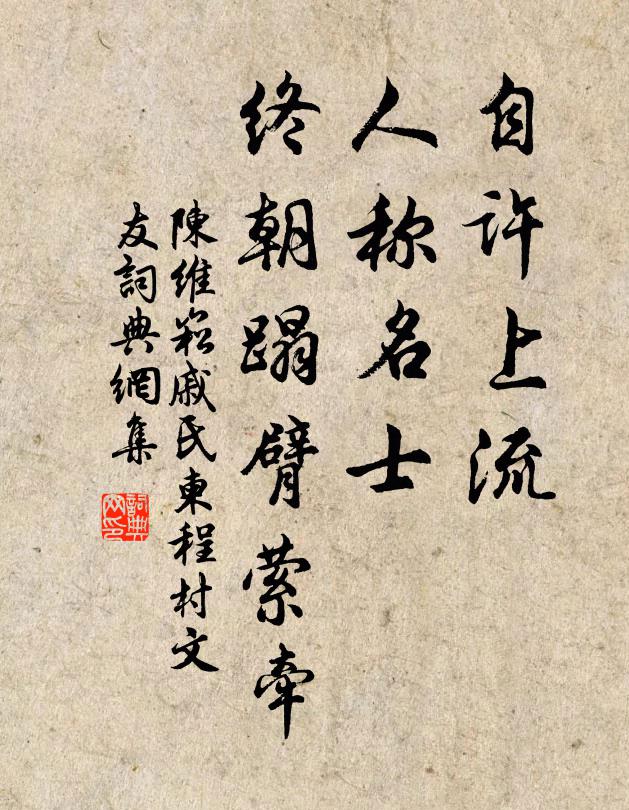 自许上流
人称名士
终朝蹋臂萦牵
陳維崧戚氏東程村文
友詞典網集
詞典网印